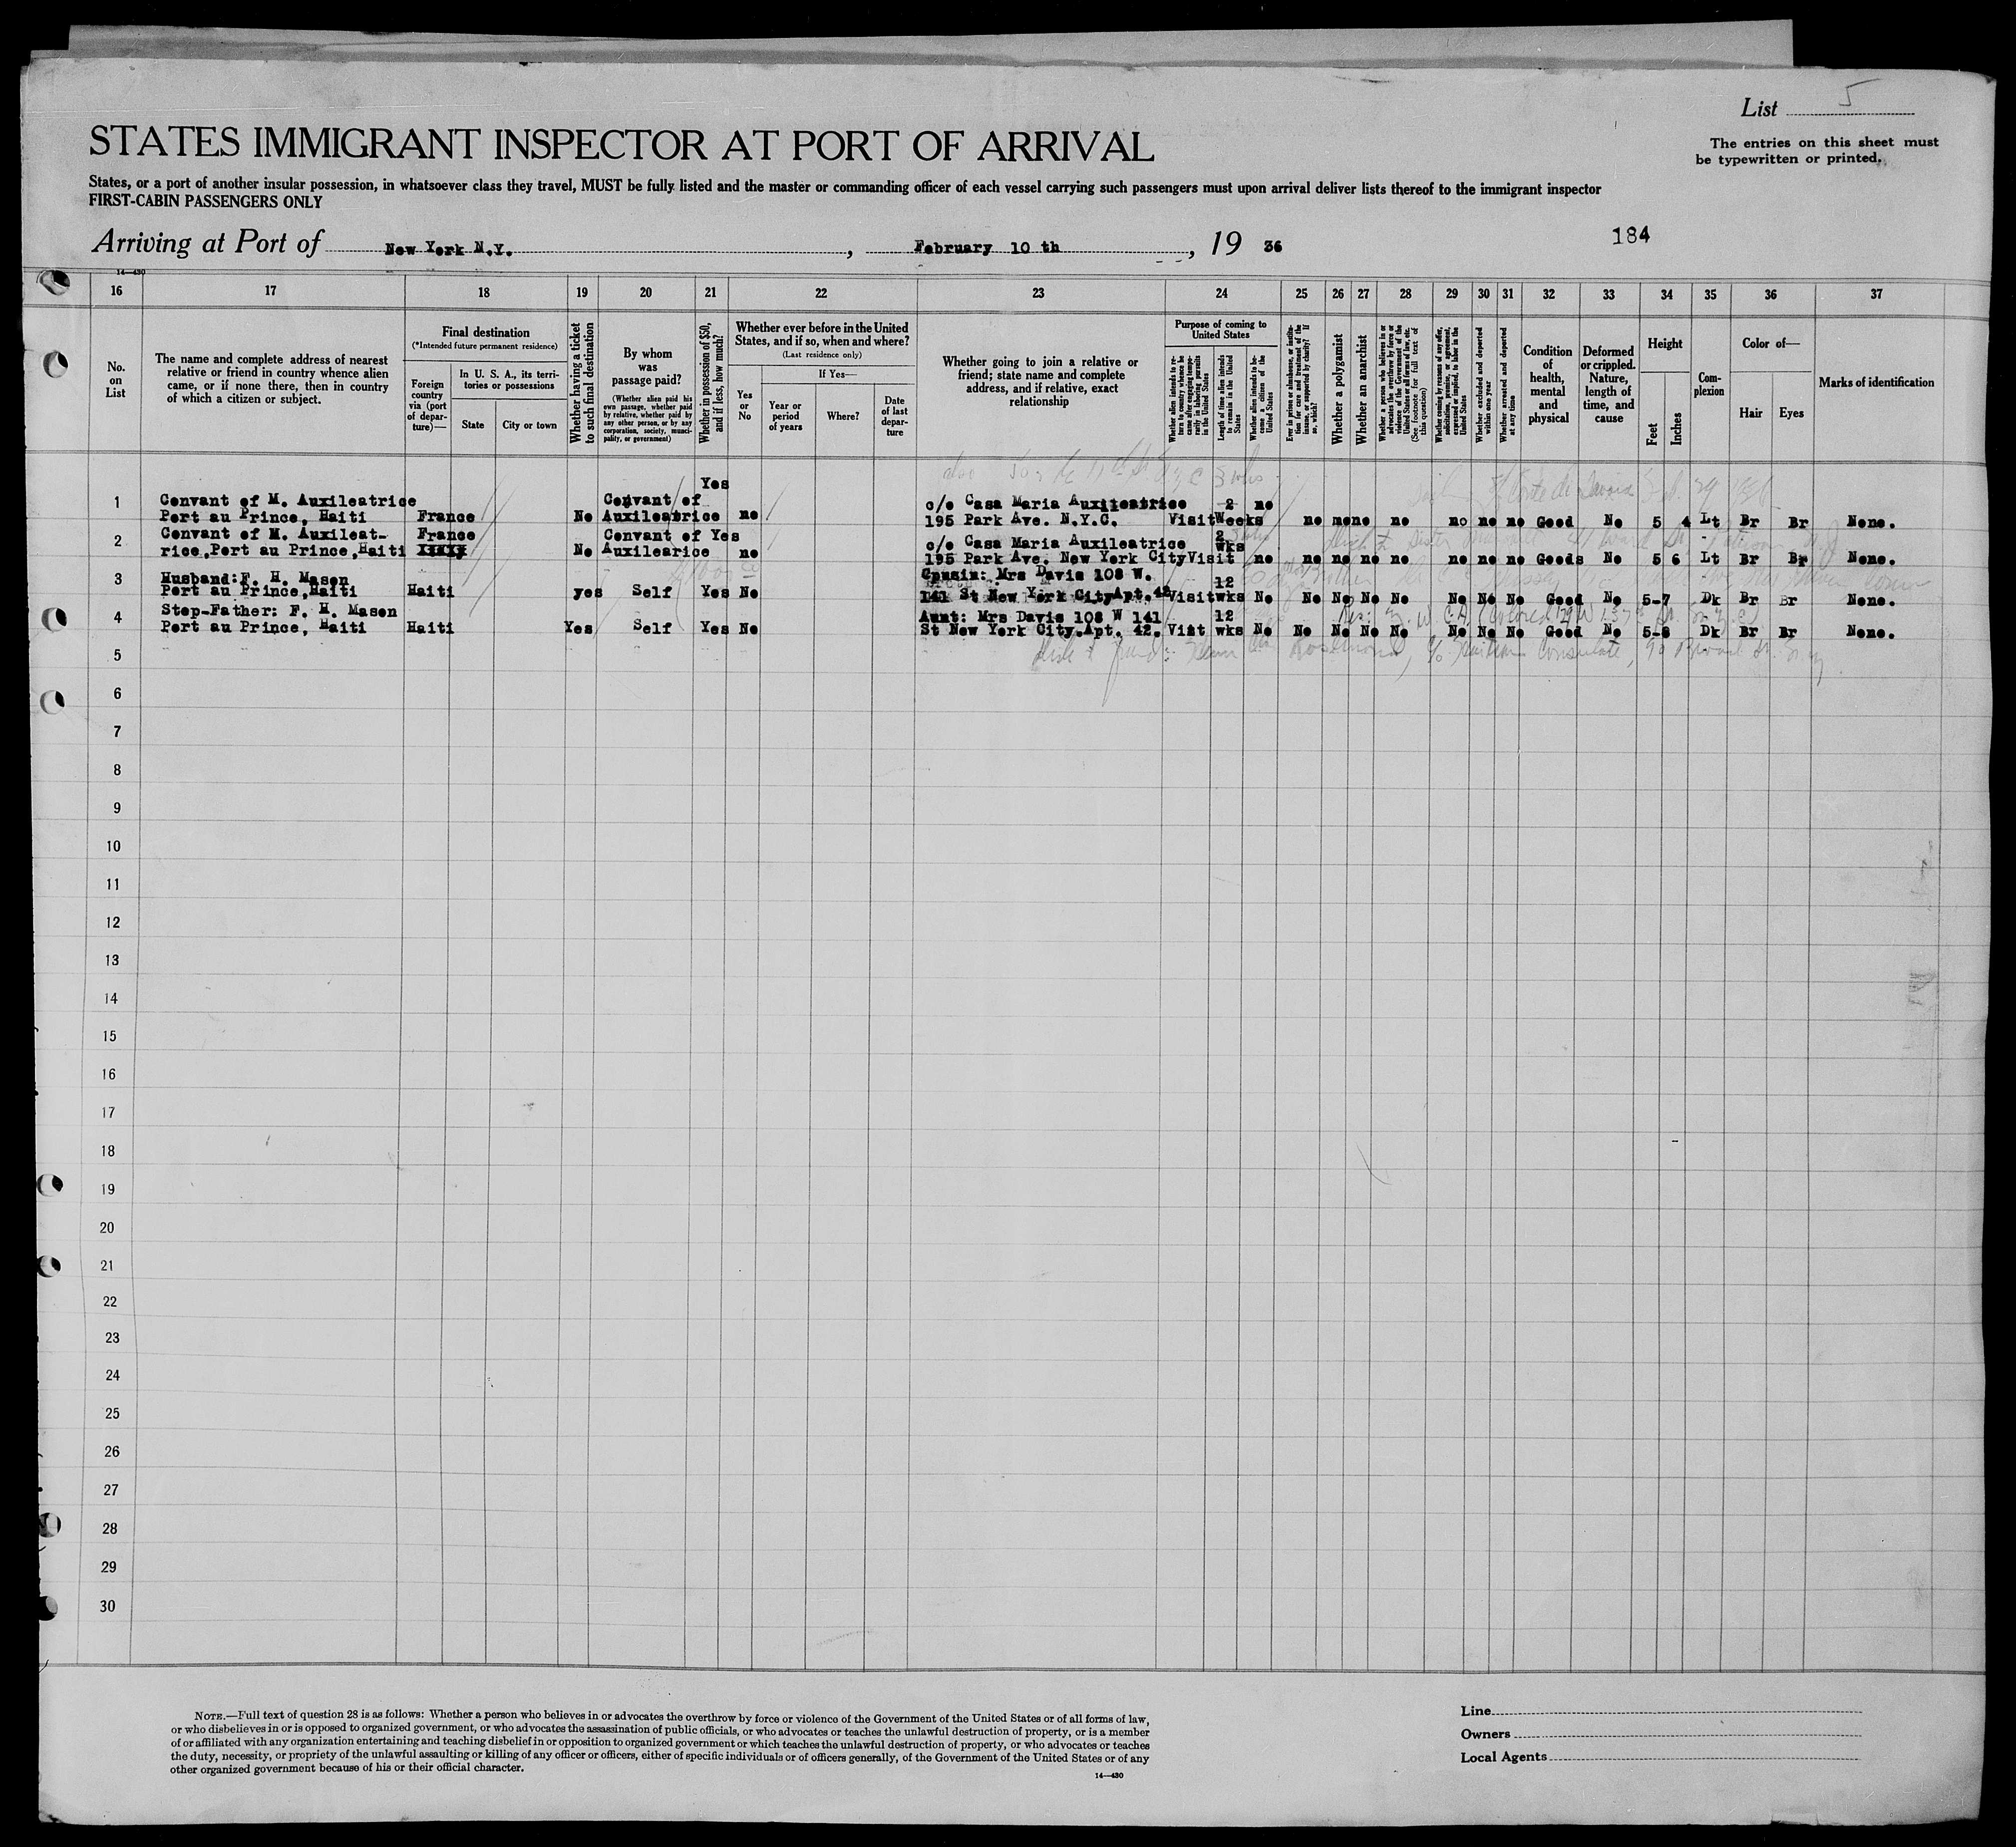 List 5
The entries on this sheet must
be typewritten or printed.
STATES IMMIGRANT INSPECTOR AT PORT OF ARRIVAL
States, or a port of another insular possession, in whatsoever class they travel, MUST be fully listed and the master or commanding officer of each vessel carrying such passengers must upon arrival deliver lists thereof to the immigrant inspector
FIRST-CABIN PASSENGERS ONLY
Arriving at Port of New York N.Y. , February 10 th , 19 36
184
14—430
16 17 18 19 20 21 22 23 24 25 26 27 28 29 30 31 32 33 34 35 36 37
No. on List
The name and complete address of nearest relative or friend in country whence alien came, or if none there, then in country of which a citizen or subject.
Final destination
(*Intended future permanent residence)
Foreign country via (port of departure)—
In U. S. A., its territories or possessions
State
City or town
Whether having a ticket to such final destination
By whom was passage paid?
(Whether alien paid his own passage, whether paid by relative, whether paid by any other person, or by any corporation, society, municipality, or government)
Whether in possession of $50, and if less, how much?
Whether ever before in the United States, and if so, when and where?
(Last residence only)
Yes or No
If Yes—
Year or period of years
Where?
Date of last departure
Whether going to join a relative or friend; state name and complete address, and if relative, exact relationship
Purpose of coming to United States
Whether alien intends to return to country whence he came after engaging temporarily in laboring pursuits in the United States
Length of time alien intends to remain in the United States
Whether alien intends to become a citizen of the United States
Ever in prison or almshouse, or institution for care and treatment of the insane, or supported by charity? If so, which?
Whether a polygamist
Whether an anarchist
Whether a person who believes in or advocates the overthrow by force or violence of the Government of the United States or all forms of law, etc. (See footnote for full text of this question)
Whether coming by reasons of any offer, solicitation, promise, or agreement, expressed or implied, to labor in the United States
Whether excluded and deported within one year
Whether arrested and deported at any time
Condition of health, mental and physical
Deformed or crippled. Nature, length of time, and cause
Height
Feet
Inches
Complexion
Color of—
Hair
Eyes
Marks of identification
Yes
1 Convant of M. Auxileatrice Convant of c/o Casa Maria Auxileatrice 2 no
Port au Prince, Haiti France No Auxileatrice no 195 Park Ave. N.Y.C. Visit Weeks no no no no no no no Good No 5 4 Lt Br Br None.
2 Convant of M. Auxileat- France Convant of Yes c/o Casa Maria Auxileatrice 2
rice,Port au Prince,Haiti No Auxilearice no 195 Park Ave. New York City Visit wks no no no no no no no no Goods No 5 6 Lt Br Br None.
3 Husband: F. H. Mason Cousin: Mrs Davis 108 W. 12
Port au Prince,Haiti Haiti yes Self Yes No 141 St New York City Apt. 42 Visit wks No No No No No No No No Good No 5-7 Dk Br Br None.
4 Step-Father: F. H. Mason Aunt: Mrs Davis 108 W 141 12
Port au Prince, Haiti Haiti Yes Self Yes No St New York City.Apt. 42. Visit wks No No No No No No No No Good No 5-8 Dk Br Br None.
5
6
7
8
9
10
11
12
13
14
15
16
17
18
19
20
21
22
23
24
25
26
27
28
29
30
NOTE.—Full text of question 28 is as follows: Whether a person who believes in or advocates the overthrow by force or violence of the Government of the United States or of all forms of law,
or who disbelieves in or is opposed to organized government, or who advocates the assassination of public officials, or who advocates or teaches the unlawful destruction of property, or is a member
of or affiliated with any organization entertaining and teaching disbelief in or opposition to organized government or which teaches the unlawful destruction of property, or who advocates or teaches
the duty, necessity, or propriety of the unlawful assaulting or killing of any officer or officers, either of specific individuals or of officers generally, of the Government of the United States or of any
other organized government because of his or their official character.
14—430
Line
Owners
Local Agents